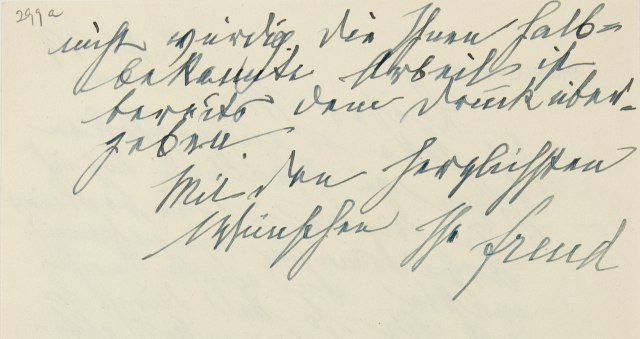 299a
nicht würdig. Die Ihnen halb=
bekannte Arbeit ist
bereits dem Druck über-
geben.
Mit den herzlichsten
Wünschen Ihr Freud